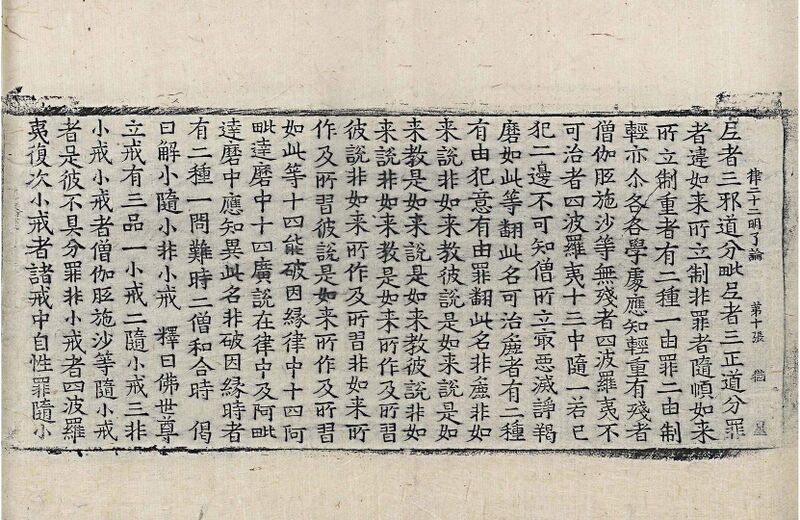 律二十二明了論 第十張 猶 星
𡰱者三邪道分毗𡰱者三正道分罪
者違如来所立制非罪者隨順如来
所立制重者有二種一由罪二由制
輕亦尒各各學處應知輕重有殘者
僧伽胵施沙等無殘者四波羅夷不
可治者四波羅夷十三中隨一若已
犯二邊不可知僧所立最惡滅諍羯
磨如此等翻此名可治麁者有二種
有由犯意有由罪翻此名非麁非如
来說非如来教彼說是如来說是如
来教是如来說是如来教彼說非如
来說非如来教是如来所作及所習
彼說非如来所作及所習非如来所
作及所習彼說是如来所作及所習
如此等十四能破因緣律中十四阿
毗達磨中十四廣說在律中及阿毗
達磨中應知異此名非破因緣時者
有二種一問難時二僧和合時 偈
曰解小隨小非小戒 釋曰佛世尊
立戒有三品一小戒二隨小戒三非
小戒小戒者僧伽胵施沙等隨小戒
者是彼不具分罪非小戒者四波羅
夷復次小戒者諸戒中自性罪隨小